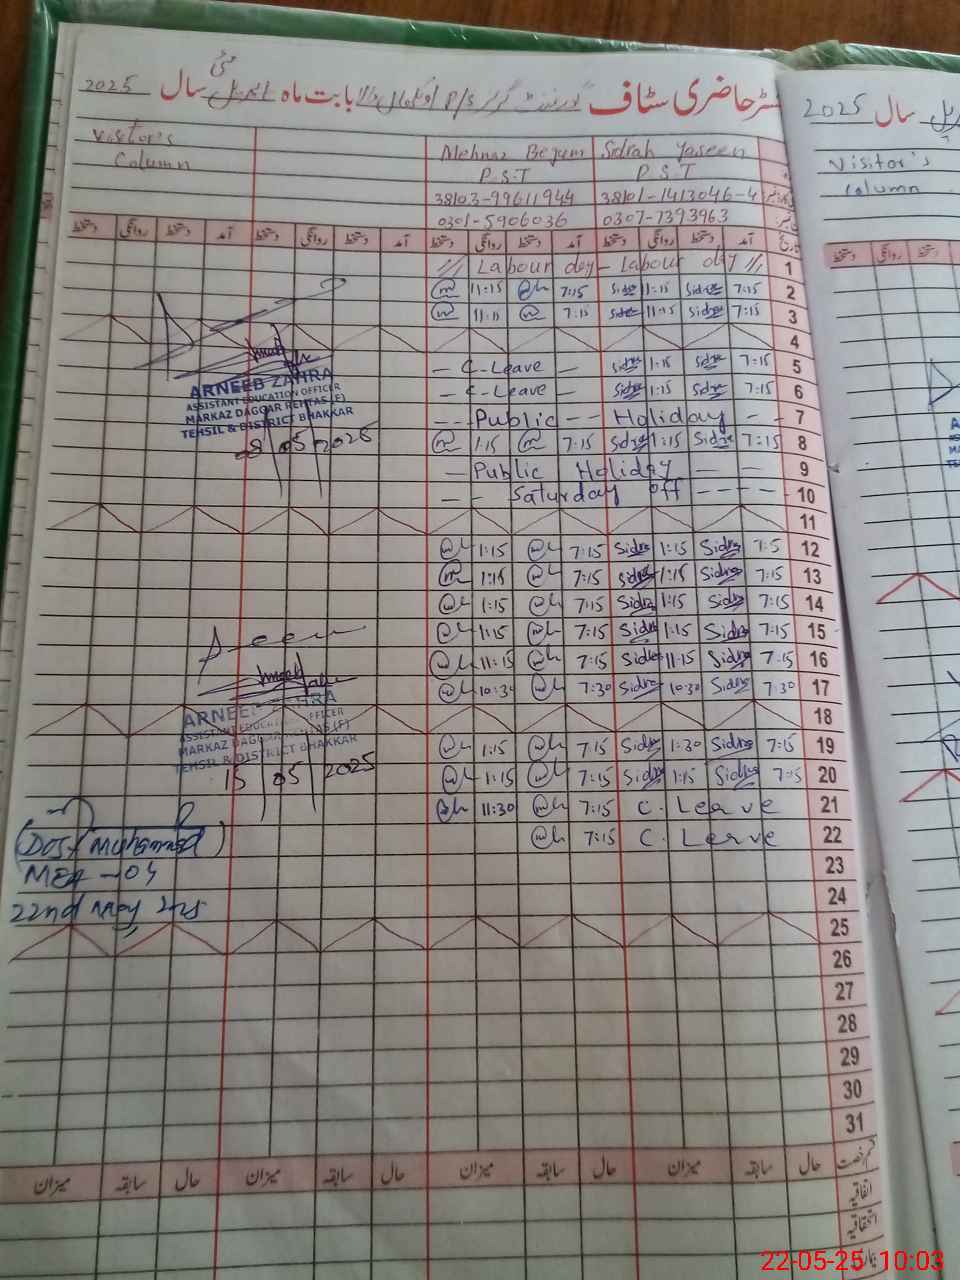 سٹر حاضری سٹاف گورنمنٹ گرلز P/S بابت ماہ اپریل مئی سال 2025
Visitor's Column
Mehnaz Begum
Sidrah Yaseen
P.S.T
P.S.T
38103-99611944
38101-1413046-4
0301-5906036
0307-7393963
دستخط روانگی دستخط آمد دستخط روانگی دستخط آمد دستخط روانگی دستخط آمد دستخط روانگی دستخط آمد تاریخ
Labour day - Labour day 1
11:15 7:15 Sidra 11:15 Sidra 7:15 2
11:15 7:15 Sidra 11:15 Sidra 7:15 3
4
- C-Leave - Sidra 1:15 Sidra 7:15 5
- C-Leave - Sidra 1:15 Sidra 7:15 6
--- Public --- Holiday - - 7
1:15 7:15 Sidra 1:15 Sidra 7:15 8
- Public Holiday - - 9
- - Saturday off ---- 10
11
1:15 7:15 Sidra 1:15 Sidra 7:5 12
1:15 7:15 Sidra 1:15 Sidra 7:15 13
1:15 7:15 Sidra 1:15 Sidra 7:15 14
1:15 7:15 Sidra 1:15 Sidra 7:15 15
11:15 7:15 Sidra 11:15 Sidra 7:15 16
10:30 7:30 Sidra 10:30 Sidra 7:30 17
18
1:15 7:15 Sidra 1:30 Sidra 7:15 19
1:15 7:15 Sidra 1:15 Sidra 7:15 20
11:30 7:15 C. Leave 21
7:15 C. Leave 22
23
24
25
26
27
28
29
30
31
ARNEEB ZAHRA
ASSISTANT EDUCATION OFFICER
MARKAZ DAGGAR REHTAS (F)
TEHSIL & DISTRICT BHAKKAR
8 05 2025
ARNEEB ZAHRA
ASSISTANT EDUCATION OFFICER
MARKAZ DAGGAR REHTAS (F)
TEHSIL & DISTRICT BHAKKAR
15 05 2025
(Dost Muhammad)
MEA-04
22nd May 2025
میزان سابقہ حال میزان سابقہ حال میزان سابقہ حال میزان سابقہ حال قسم رخصت
اتفاقیہ
استحقاقیہ
2025 سال
Visitor's
column
دستخط روانگی دستخط
22-05-25 10:03